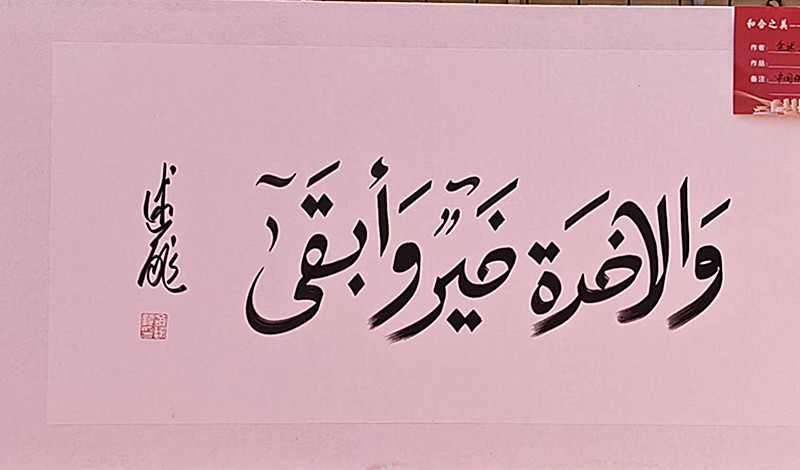 والآخرة خير وأبقى
和合之美
作者:
作品:
备注: 中国